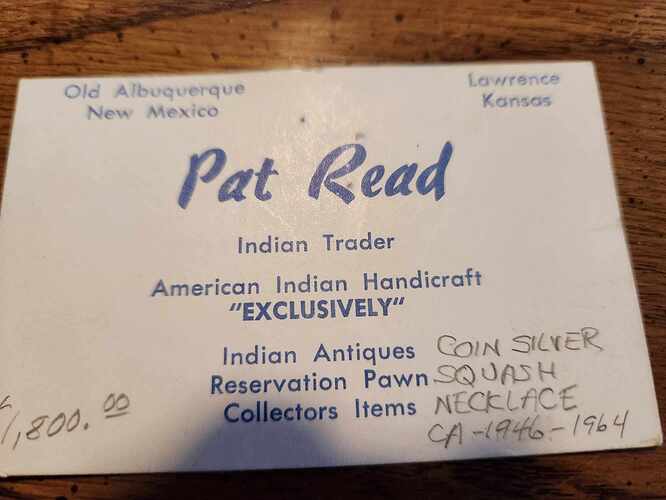 Old Albuquerque
New Mexico
Lawrence
Kansas
Pat Read
Indian Trader
American Indian Handicraft
"EXCLUSIVELY"
Indian Antiques
Reservation Pawn
Collectors Items
COIN SILVER
SQUASH
NECKLACE
CA-1946-1964
$1,800.00